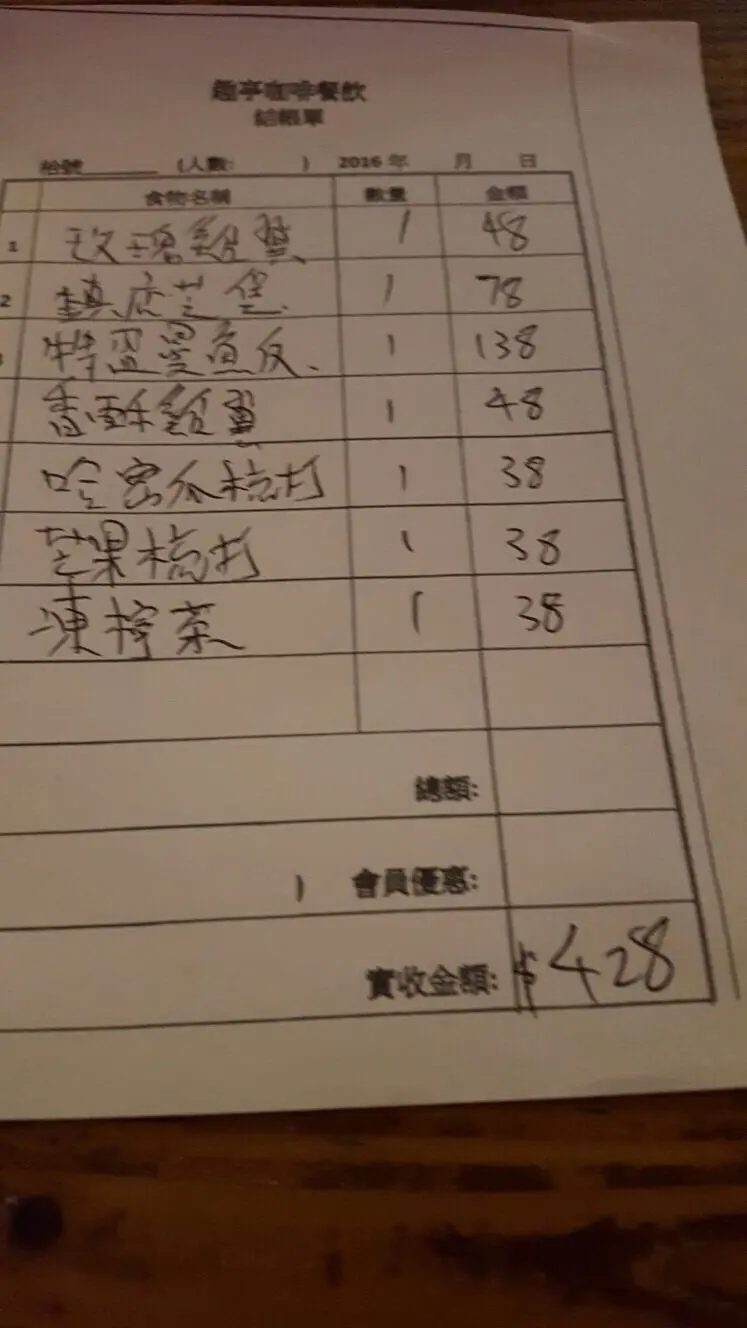 趣亭咖啡餐飲
結帳單
枱號 (人數: ) 2016 年 月 日
食物名稱 數量 金額
1 玫瑰雞翼 1 48
2 鎮店芝堡 1 78
特盟墨魚 1 138
香酥雞翼 1 48
哈密瓜梳打 1 38
芒果梳打 1 38
凍檸茶 1 38
總額:
會員優惠:
實收金額: $428